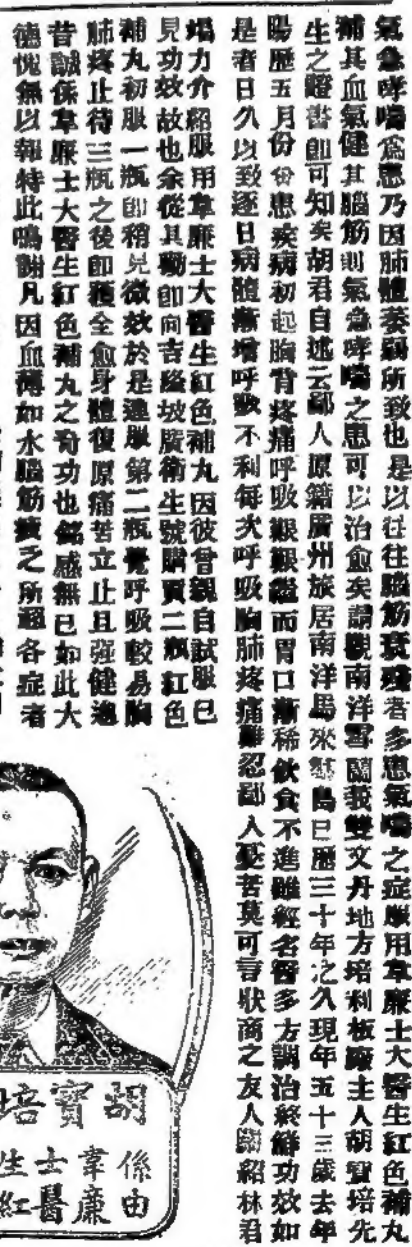 氣急哮喘爲患乃因肺體萎弱所致也是以往往腦筋衰殘者多患氣喘之症服用韋廉士大醫生紅色補丸
補其血氣健其腦筋則氣急哮喘之患可以治愈矣請觀南洋雪蘭莪雙文丹地方培利板廠主人胡寶培先
生之證書即可知矣胡君自述云鄙人原籍廣州旅居南洋馬來羣島已歷三十年之久現年五十三歲去年
陽歷五月份份患疾病初起胸背疼痛呼吸艱艱繼而胃口漸稀飲食不進雖經名醫多方調治終鮮功效如
是者日久以致逐日病體漸增呼吸不利每次呼吸胸肺疼痛難忍鄙人憂苦莫可言狀商之友人歐紹林君
竭力介紹服用韋廉士大醫生紅色補丸因彼曾親自試服已
見功效故也余從其勸即向吉隆坡廣衛生號購買二瓶紅色
補丸初服一瓶即稍見微效於是連服第二瓶覺呼吸較易胸
肺疼止待三瓶之後即獲全愈身體復原痛苦立止且强健逾
昔誠係韋廉士大醫生紅色補丸之奇功也銘感無已如此大
德愧無以報特此鳴謝凡因血薄如水腦筋疲乏所起各症者
胡寶培
係由
韋廉
士醫
生紅